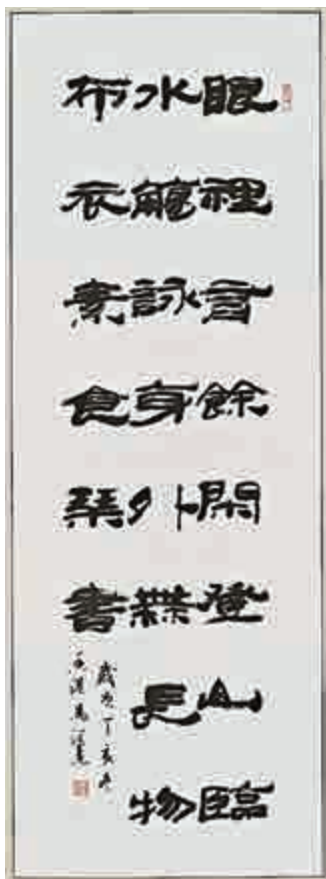 眼裡有餘閑登山臨
水觴詠身外無長物
布衣素食琴書
歲次丁亥冬
香港馬